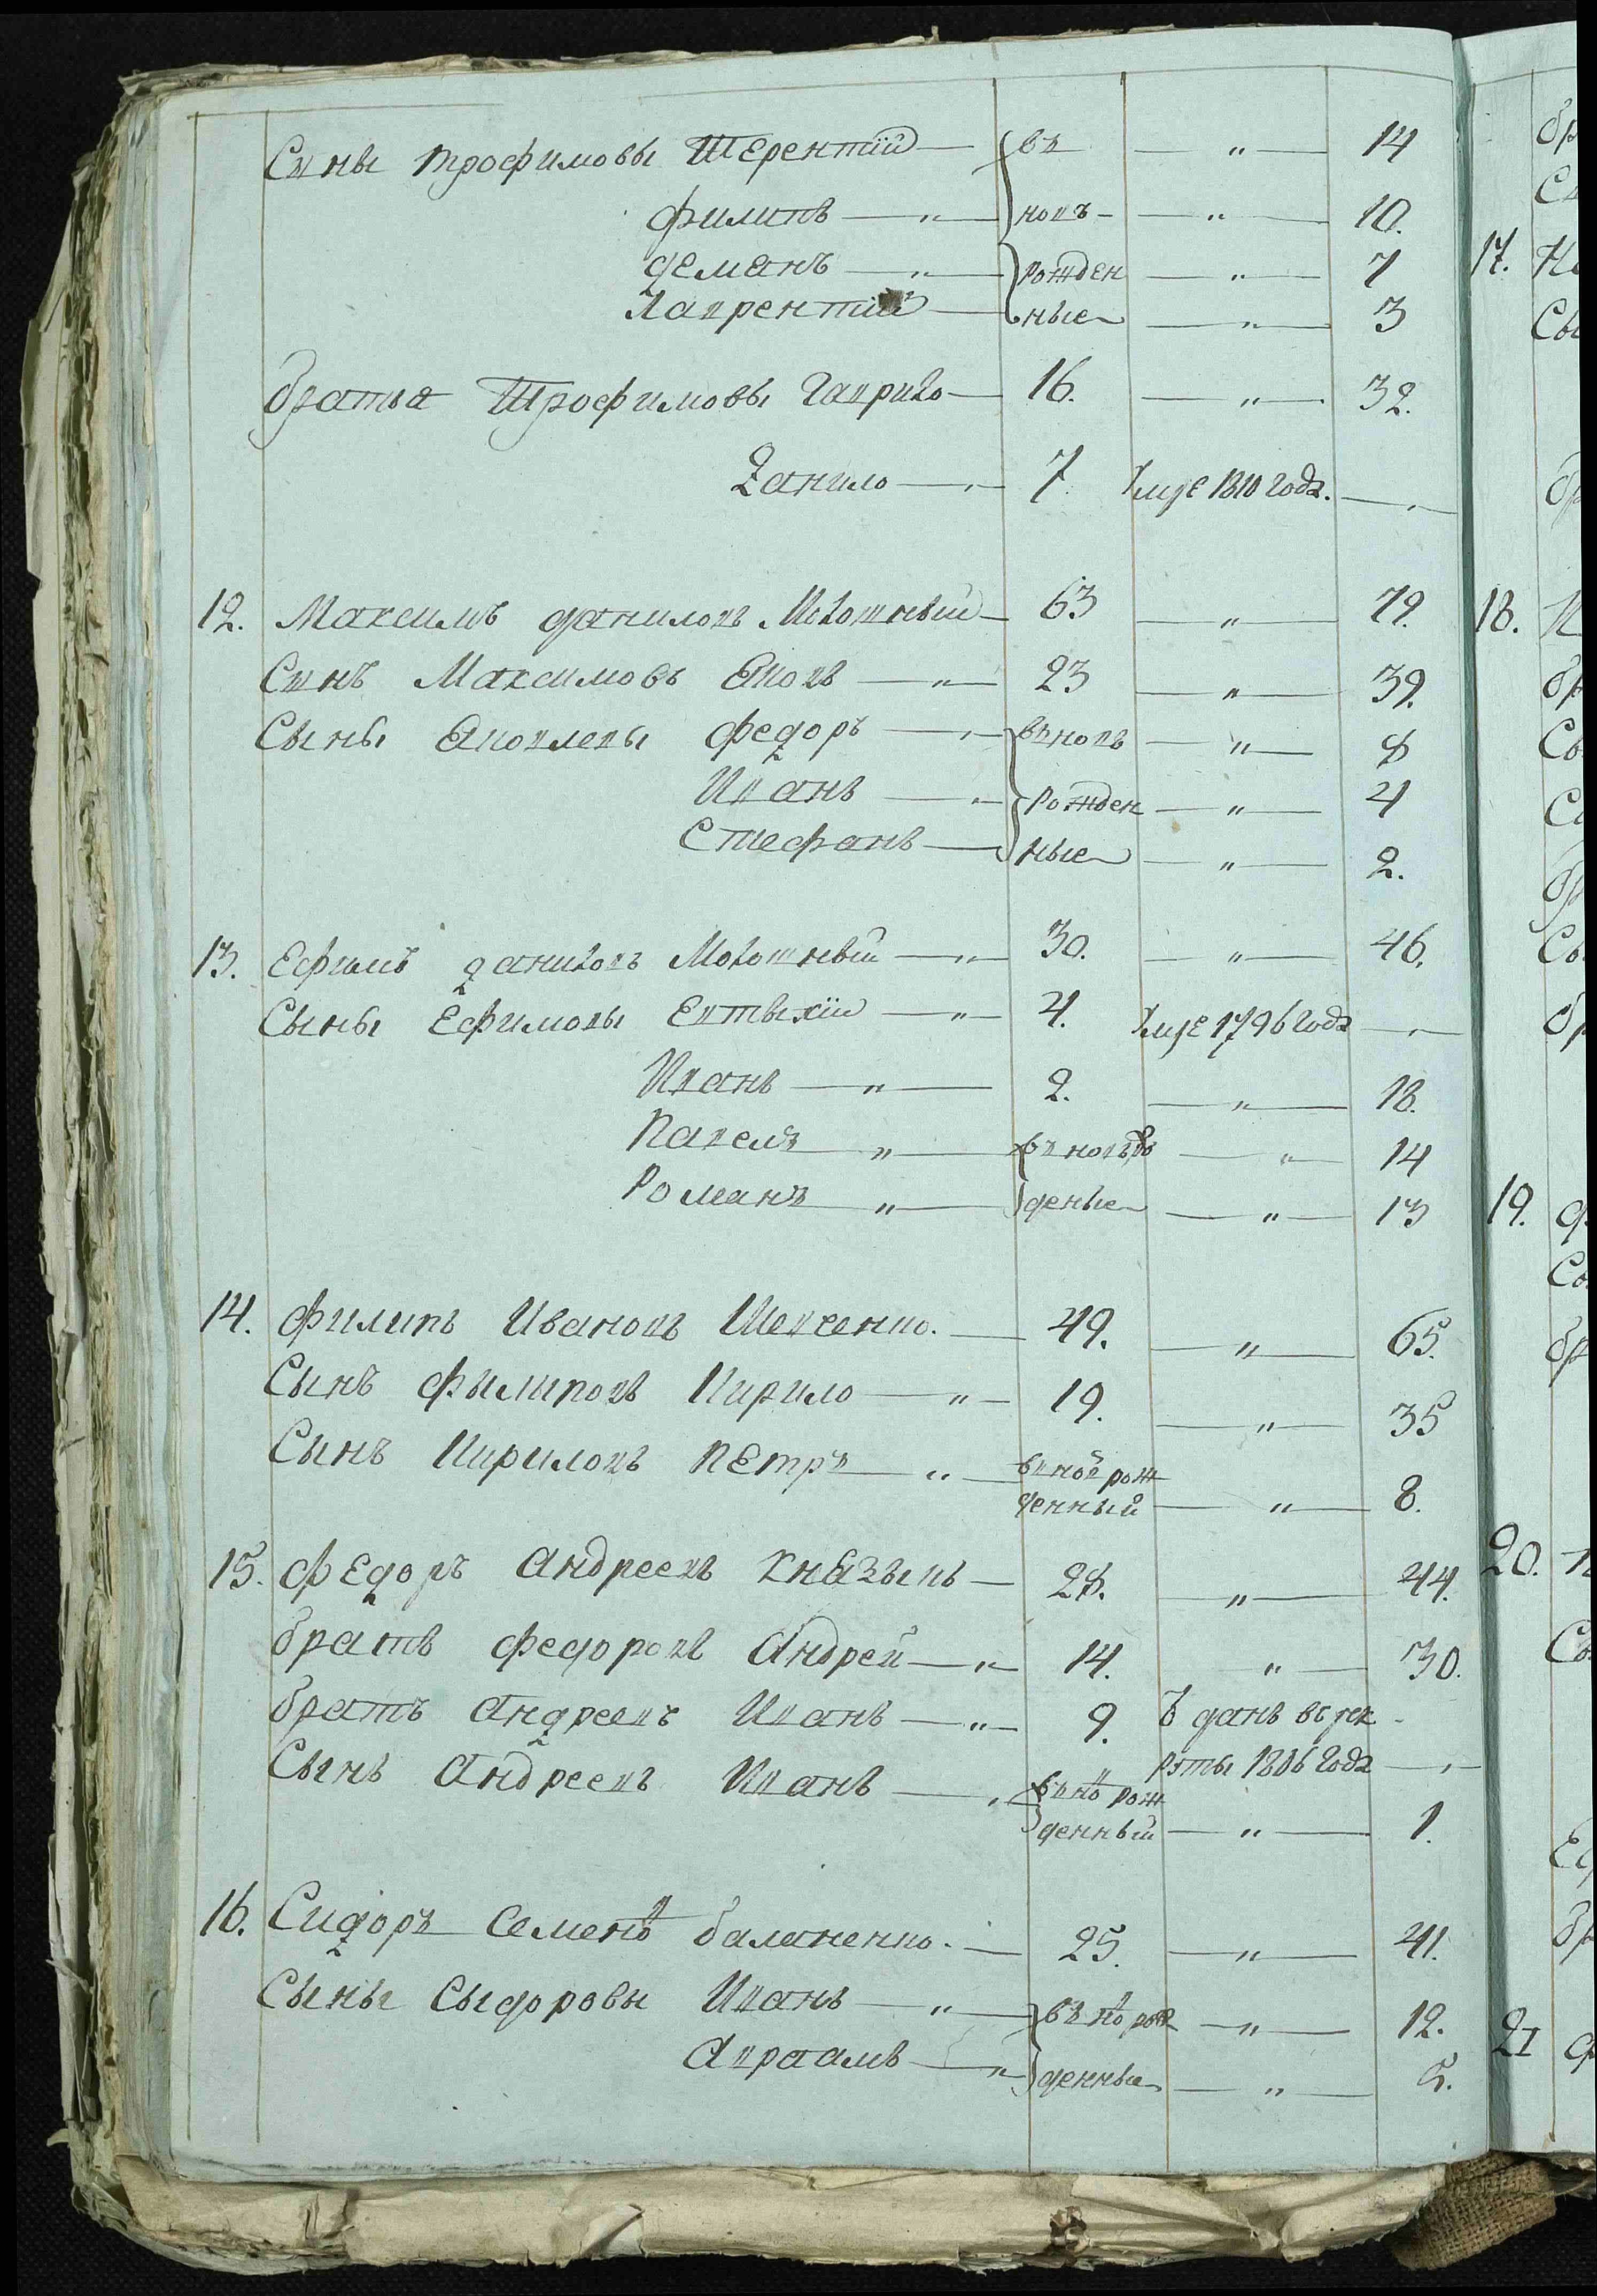 Сыны Трофимовы Терентiй — въ — " — 14
Филипъ — " — новъ — " — 10.
Деманъ — " — рожден — " — 7
Лаврентiй — ные — " — 3
братья Трофимовы Гаврило — 16. — " — 32.
Данило — " — 7. Умре 1810 года. — "
12. Максимъ Даниловъ — 63 — " — 79.
Сынъ Максимовъ Яковъ — " — 23 — " — 39.
Сыны Яковлевы Федоръ — " — вновь — " — 8
Иванъ — " — рожден — " — 4
Стефанъ — ные — " — 2.
13. Ефимъ Даниловъ — " — 30. — " — 46.
Сыны Ефимовы Евтыхiй — " — 4. Умре 1796 года — "
Иванъ — " — 2. — " — 18.
Павелъ — " — вновь рож — " — 14
Романъ — " — деные — " — 13
14. Филипъ Ивановъ Шевченко. — 49. — " — 65.
Сынъ Филиповъ Кирило — " — 19. — " — 35
Сынъ Кириловъ Петръ — " — вновь рож
денный — " — 8.
15. Федоръ Андреевъ Князывъ — 28. — " — 44.
братъ Федоровъ Андрей — " — 14. " — 30.
братъ Андреевъ Иванъ — " — 9. Ъданъ въ рек
руты 1806 года — "
Сынъ Андреевъ Иванъ — " — вновь рож
денный — " — 1.
16. Сидоръ Семеновъ Баланенко. — 25. — " — 41.
Сыны Сыдоровы Иванъ — " — вновь рож — " — 12.
Авраамъ — " — денные — " — 5.
17.
18.
19.
20.
21